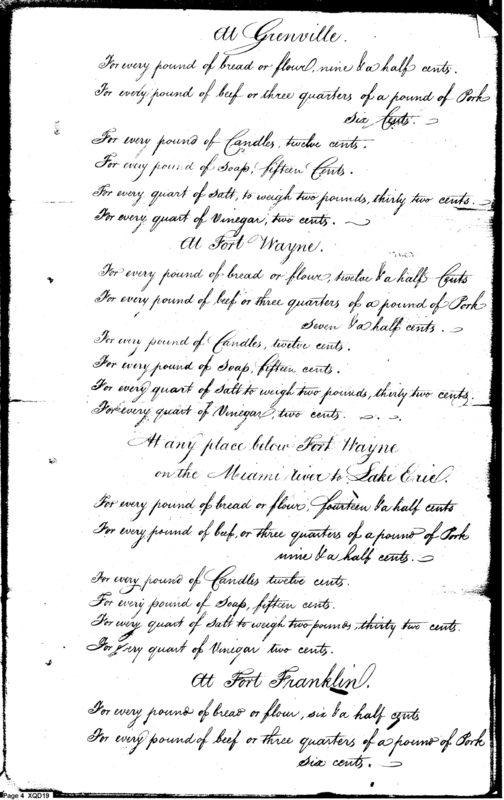 At Grenville.
For every pound of bread or flour, nine & a half cents.
For every pound of beef or three quarters of a pound of Pork
Six Cents.
For every pound of Candles, twelve cents.
For every pound of Soap, fifteen Cents.
For every quart of Salt, to weigh two pounds, thirty two cents.
For every quart of Vinegar, two cents.
At Fort Wayne.
For every pound of bread or flour, twelve & a half Cents
For every pound of beef or three quarters of a pound of Pork
Seven & a half cents.
For every pound of Candles, twelve cents.
For every pound of Soap, fifteen cents.
For every quart of Salt to weigh two pounds, thirty two cents.
For every quart of Vinegar, two cents.
At any place below Fort Wayne
on the Miami river to Lake Erie.
For every pound of bread or flour, fourteen & a half cents
For every pound of beef, or three quarters of a pound of Pork
nine & a half cents.
For every pound of Candles twelve cents.
For every pound of Soap, fifteen cents.
For every quart of Salt to weigh two pounds, thirty two cents.
For every quart of Vinegar two cents.
At Fort Franklin.
For every pound of bread or flour, six & a half cents
For every pound of beef or three quarters of a pound of Pork
six cents.
Page 4 XQD19